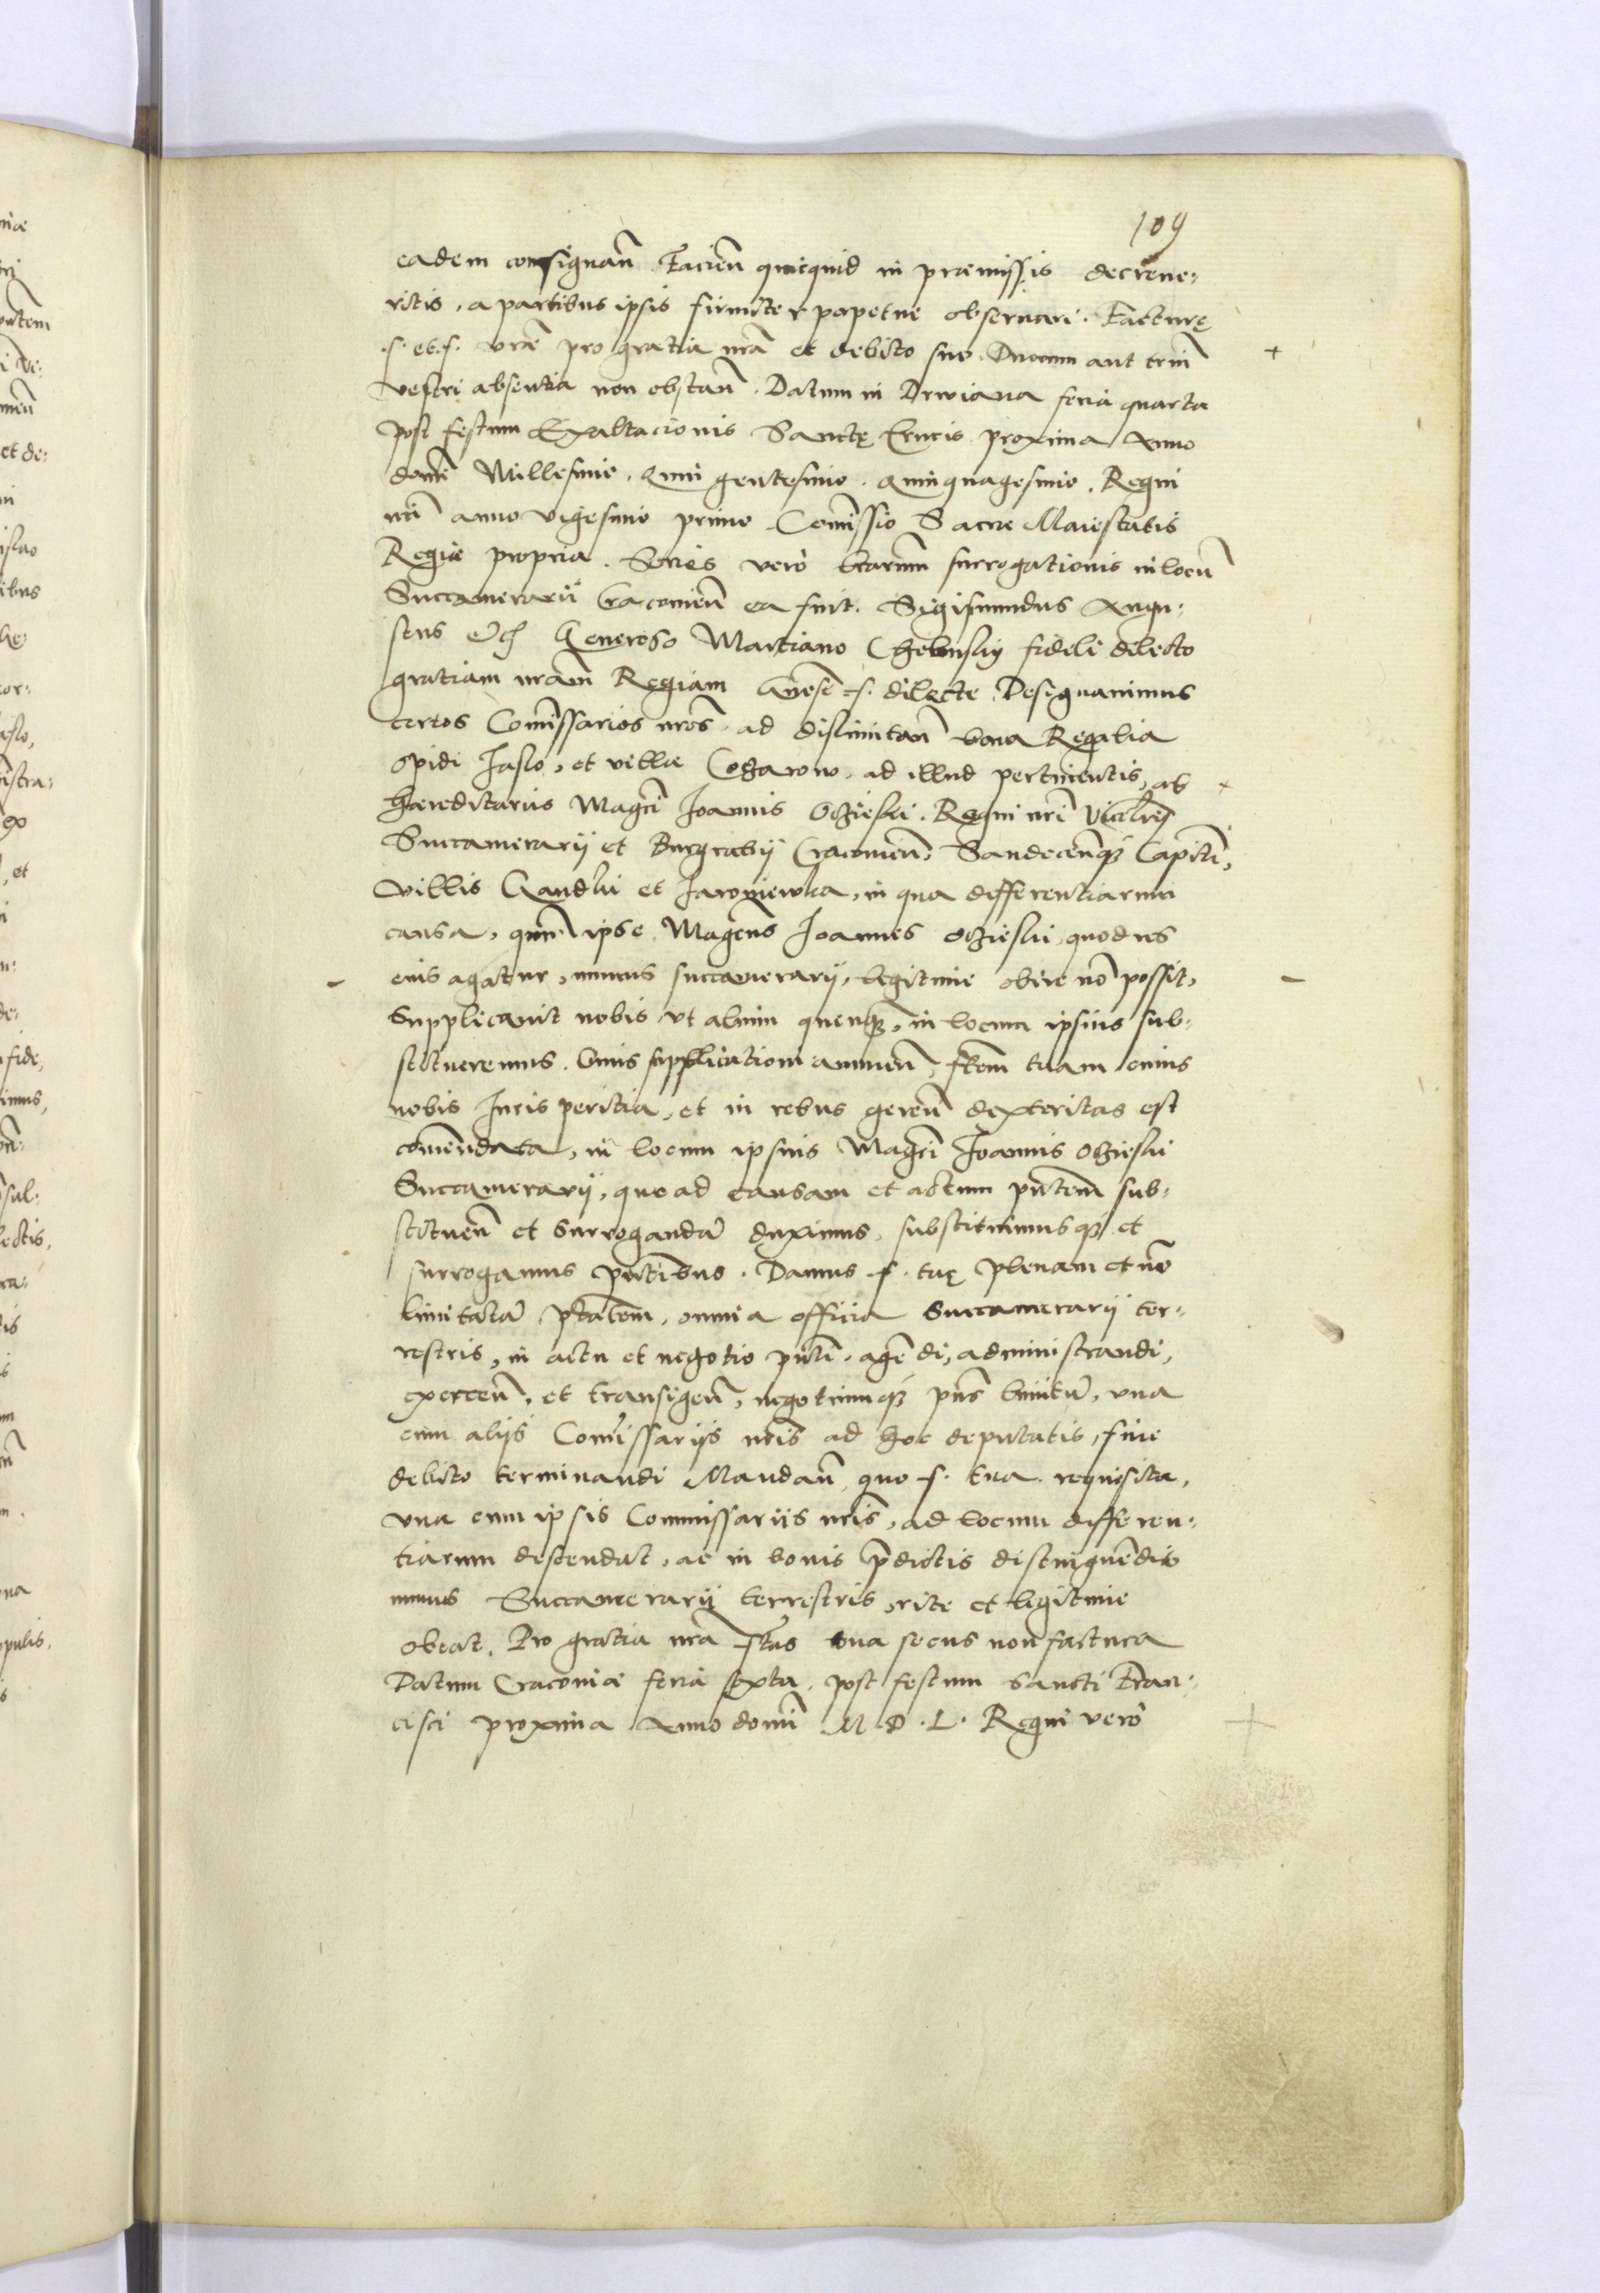 109
eadem consignan̄ Facien̄ quicquid in præmissis decreue-
ritis, a partibus ipsis firmiter perpetue obseruari. Facturę
.f. et .f. vr̄æ pro gratia nr̄a et debito suo. Duorum aut triū
vestri absentia non obstan̄. Datum in Drwiana feria quarta
post festum Exaltacionis Sanctę Crucis proxima Anno
domī Millesimo, Quingentesimo. Quinquagesimo. Regni
nr̄i anno vigesimo primo. Com̄issio Sacræ Maiestatis
Regiæ propria. Series vero lr̄arum surrogationis in locū
Succamerarii Cracouien̄ ea fuit. Sigismundus Augu-
stus etc̄ Generoso Martiano Chelmsky fideli dilecto
gratiam nr̄am Regiam Gn̄ose f. dilecte. Designauimus
certos Com̄issarios nr̄os ad dislimitan̄ bona Regalia
opidi Jaslo, et villæ ad illud pertinentis, ab
hæreditariis Magc̄i Joannis Oczieski. Regni nr̄i Vicecanc̄
Succamerarij et Burgrabij Cracouien̄, Sandecen̄qȝ Capitā,
villis Gandki et Jaroniewka, in qua differentiarum
causa, qum ipse Magcūs Joannes Oczieski, quod res
eius agatur, munus succamerarij, legitime obire nō possit,
Supplicauit nobis vt alium quempiā, in locum ipsius sub-
stitueremus. Cuius supplicationi annuen̄, f̄tem tuam cuius
nobis Juris peritia, et in rebus geren̄ dexteritas est
com̄endata, in locum ipsius Magc̄i Joannis Oczieski
Succamerarij, quo ad causam et actum pn̄tem sub-
stituen̄ et surrogandā duximus, substituimusqȝ et
surrogamus pn̄tibus. Damus .f. tuę plenam et nō
limitatā p̄tatem, omnia officia Succamerarij ter-
restris, in actu et negotio pn̄ti, agēdi, administrandi,
exercen̄, et transigen̄, negotiumqȝ pn̄s limitū, vna
cum alijs Com̄issarijs nr̄is ad hoc deputatis, fine
debito terminandi Mandan̄, quo f. tua requisita,
vna cum ipsis Commissariis nr̄is, ad locum differen-
tiarum descendat, ac in bonis p̄dictis distinguēdis
munus Succamerarij terrestris, rite et legitime
obeat. Pro gratia nr̄a f̄tas tua secus non factura
Datum Cracouiæ feria sexta, post festum Sancti Fran-
cisci proxima Anno domī M.D.L. Regni vero